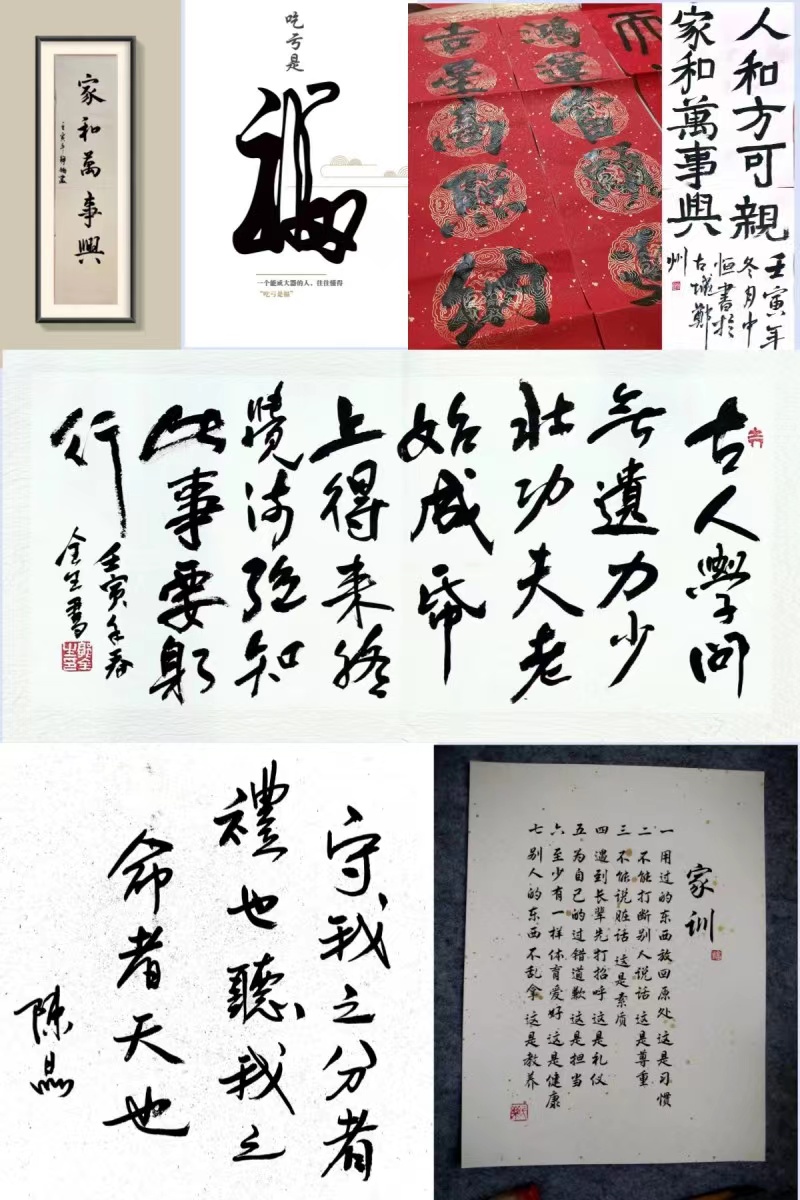 家和萬事興
壬寅年
吃亏是
福
一个能成大器的人，往往懂得
“吃亏是福”
鴻運當頭
吉星高照纳
人和方可親
家和萬事興
壬寅年
冬月中
恒書於
古城鄭
州
古人學问
无遺力少
壯功夫老
始成帋
上得来終
覺淺絕知
此事要躬
行
壬寅年春
金生書
守我之分者
禮也聽我之
命者天也
陈晶
家训
一 用过的东西放回原处 这是习惯
二 不能打断别人说话 这是尊重
三 不能说脏话 这是素质
四 遇到长辈先打招呼 这是礼仪
五 为自己的过错道歉 这是担当
六 至少有一样体育爱好 这是健康
七 别人的东西不乱拿 这是教养